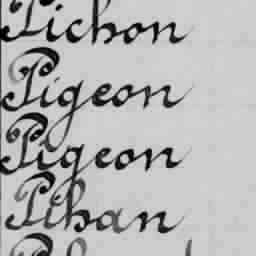 Pichon
Pigeon
Pigeon
Pihan